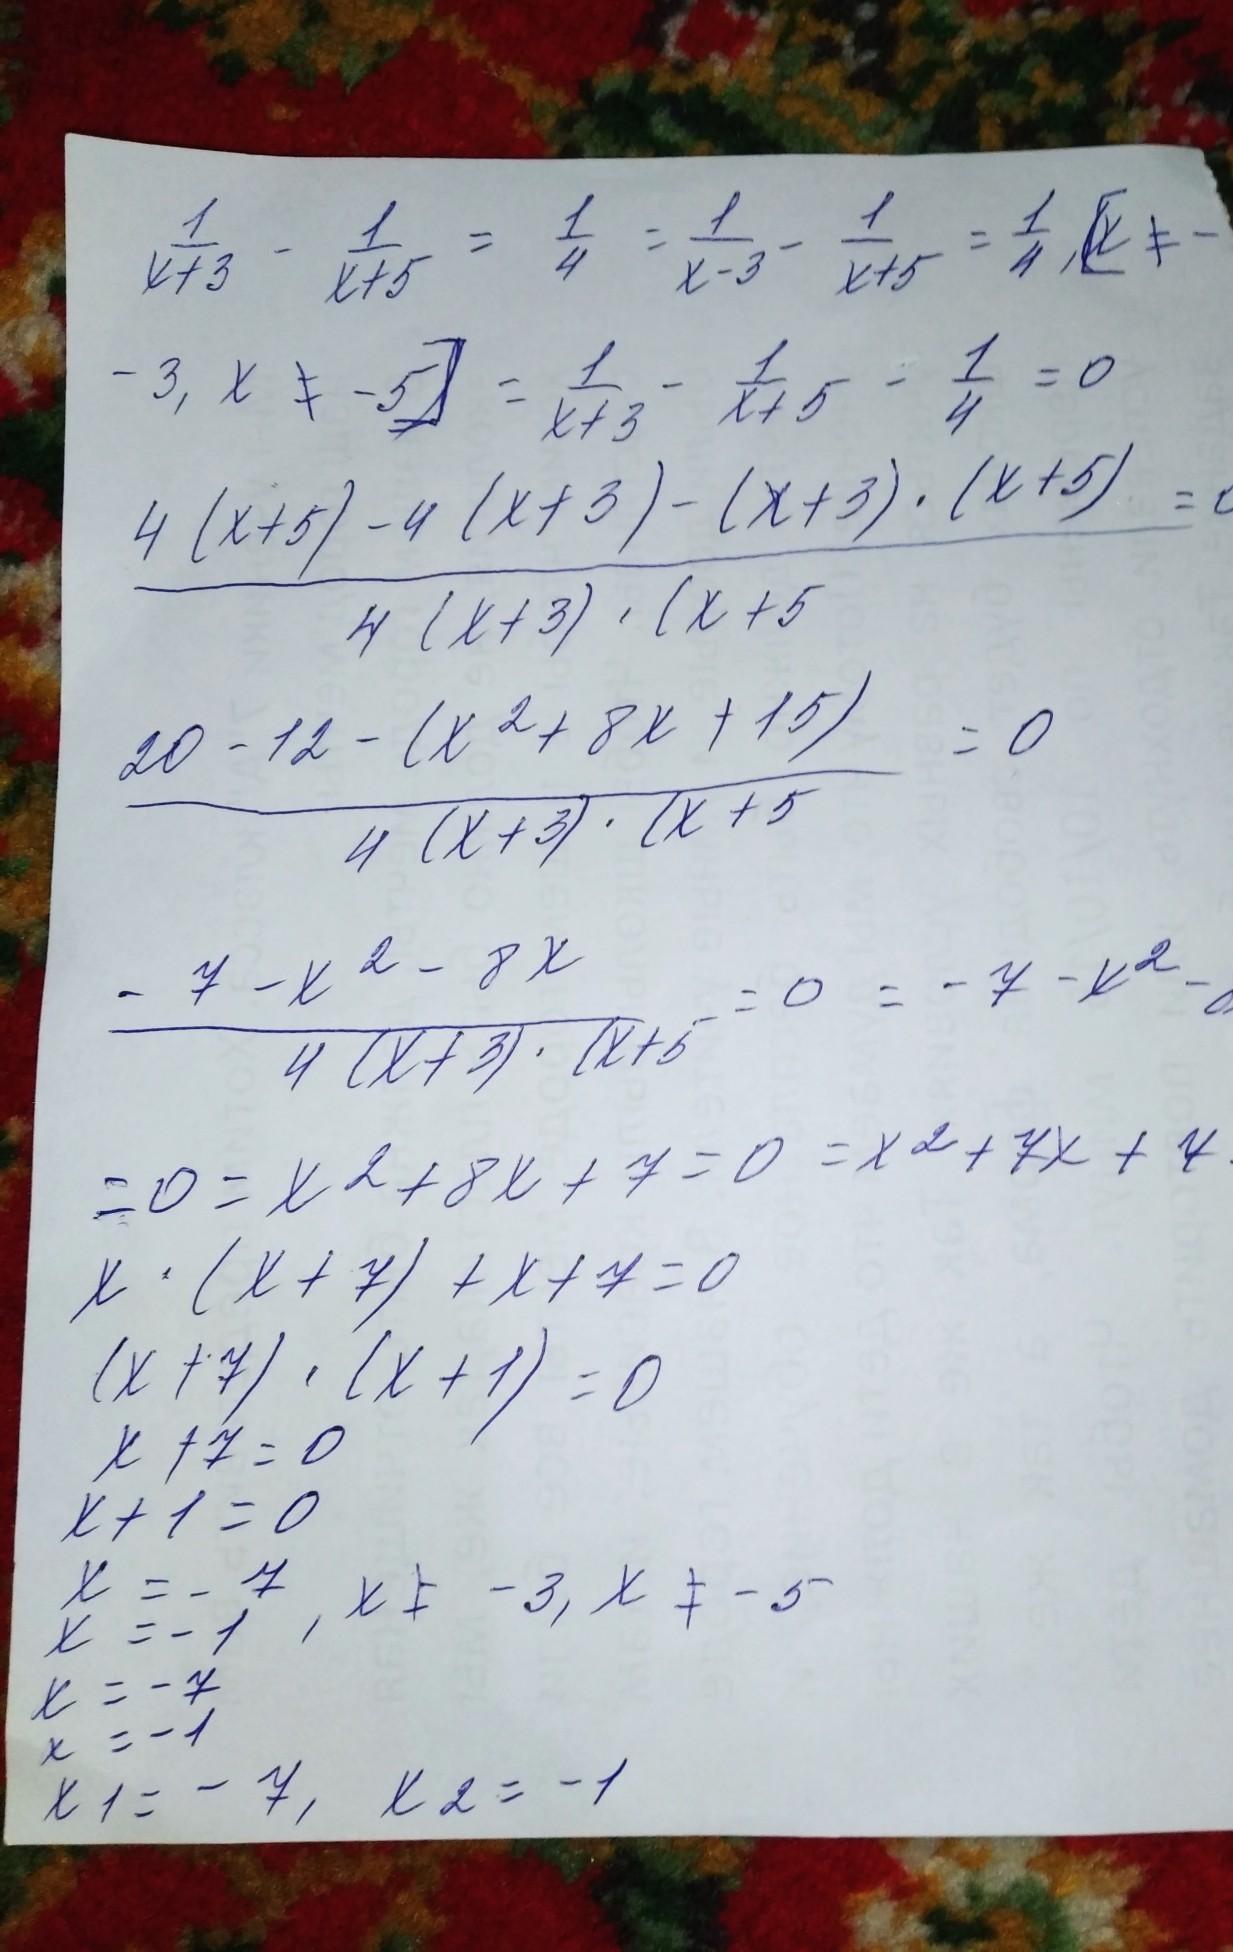 1/(x+3) - 1/(x+5) = 1/4 = 1/(x-3) - 1/(x+5) = 1/4, [x ≠ -
-3, x ≠ -5] = 1/(x+3) - 1/(x+5) - 1/4 = 0
(4(x+5) - 4(x+3) - (x+3)·(x+5))/(4(x+3)·(x+5) = 0
(20 - 12 - (x² + 8x + 15))/(4(x+3)·(x+5) = 0
(-7 - x² - 8x)/(4(x+3)·(x+5) = 0 = -7 - x² -
= 0 = x² + 8x + 7 = 0 = x² + 7x +
x · (x+7) + x + 7 = 0
(x+7) · (x+1) = 0
x + 7 = 0
x + 1 = 0
x = -7
x = -1, x ≠ -3, x ≠ -5
x = -7
x = -1
x1 = -7, x2 = -1